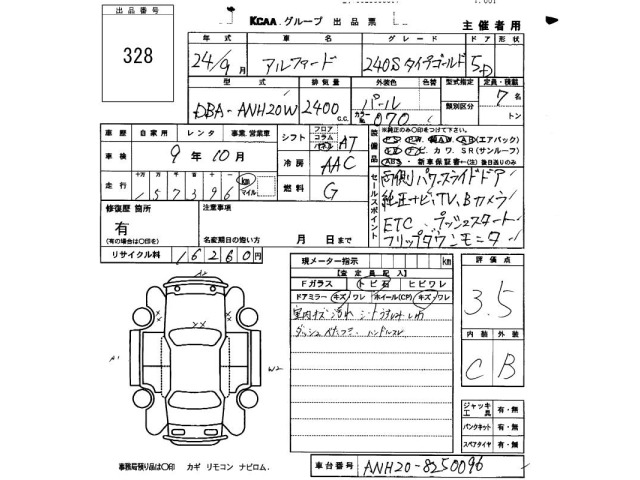 出品番号
328
KCAA グループ 出品票
主催者用
年式 車名 グレード ドア 形状
24/9月 アルファード 240S タイプゴールド 5D
型式 排気量 外装色 色替 型式指定 定員・積載
DBA-ANH20W 2400 C.C. パール カラーNo. 070 類別区分 7名
トン
車歴 自家用 レンタ 事業、営業車
シフト フロア コラム パネル AT
装備品 ※純正のみ○印をつけて下さい。
PS PW 純AW AB(エアバック)
ナビ カワ SR(サンルーフ)
ABS ・新車保証書←(注)後日送りのみ
車検 9年10月
冷房 AAC
走行 十万 万 千 百 十 一
157396 km マイル
燃料 G
セールスポイント
両側パワースライドドア
純正ナビ、TV、Bカメラ
ETC、プッシュスタート
フリップダウンモニター
修復歴 箇所
有
(有の場合は○印を)
注意事項
名変期日の扱い方 月 日まで
リサイクル料 16260円
現メーター指示 km
評価点
3.5
【査定員記入】
Fガラス トビ石 ヒビワレ
ドアミラー キズ ワレ ホイール(CP) キズ ワレ
内装 外装
C B
A2
XX
A1
W2
ジャッキ 工具 有・無
パンクキット 有・無
スペアタイヤ 有・無
事務局預り品は○印 カギ リモコン ナビロム.
車台番号 ANH20-8250096